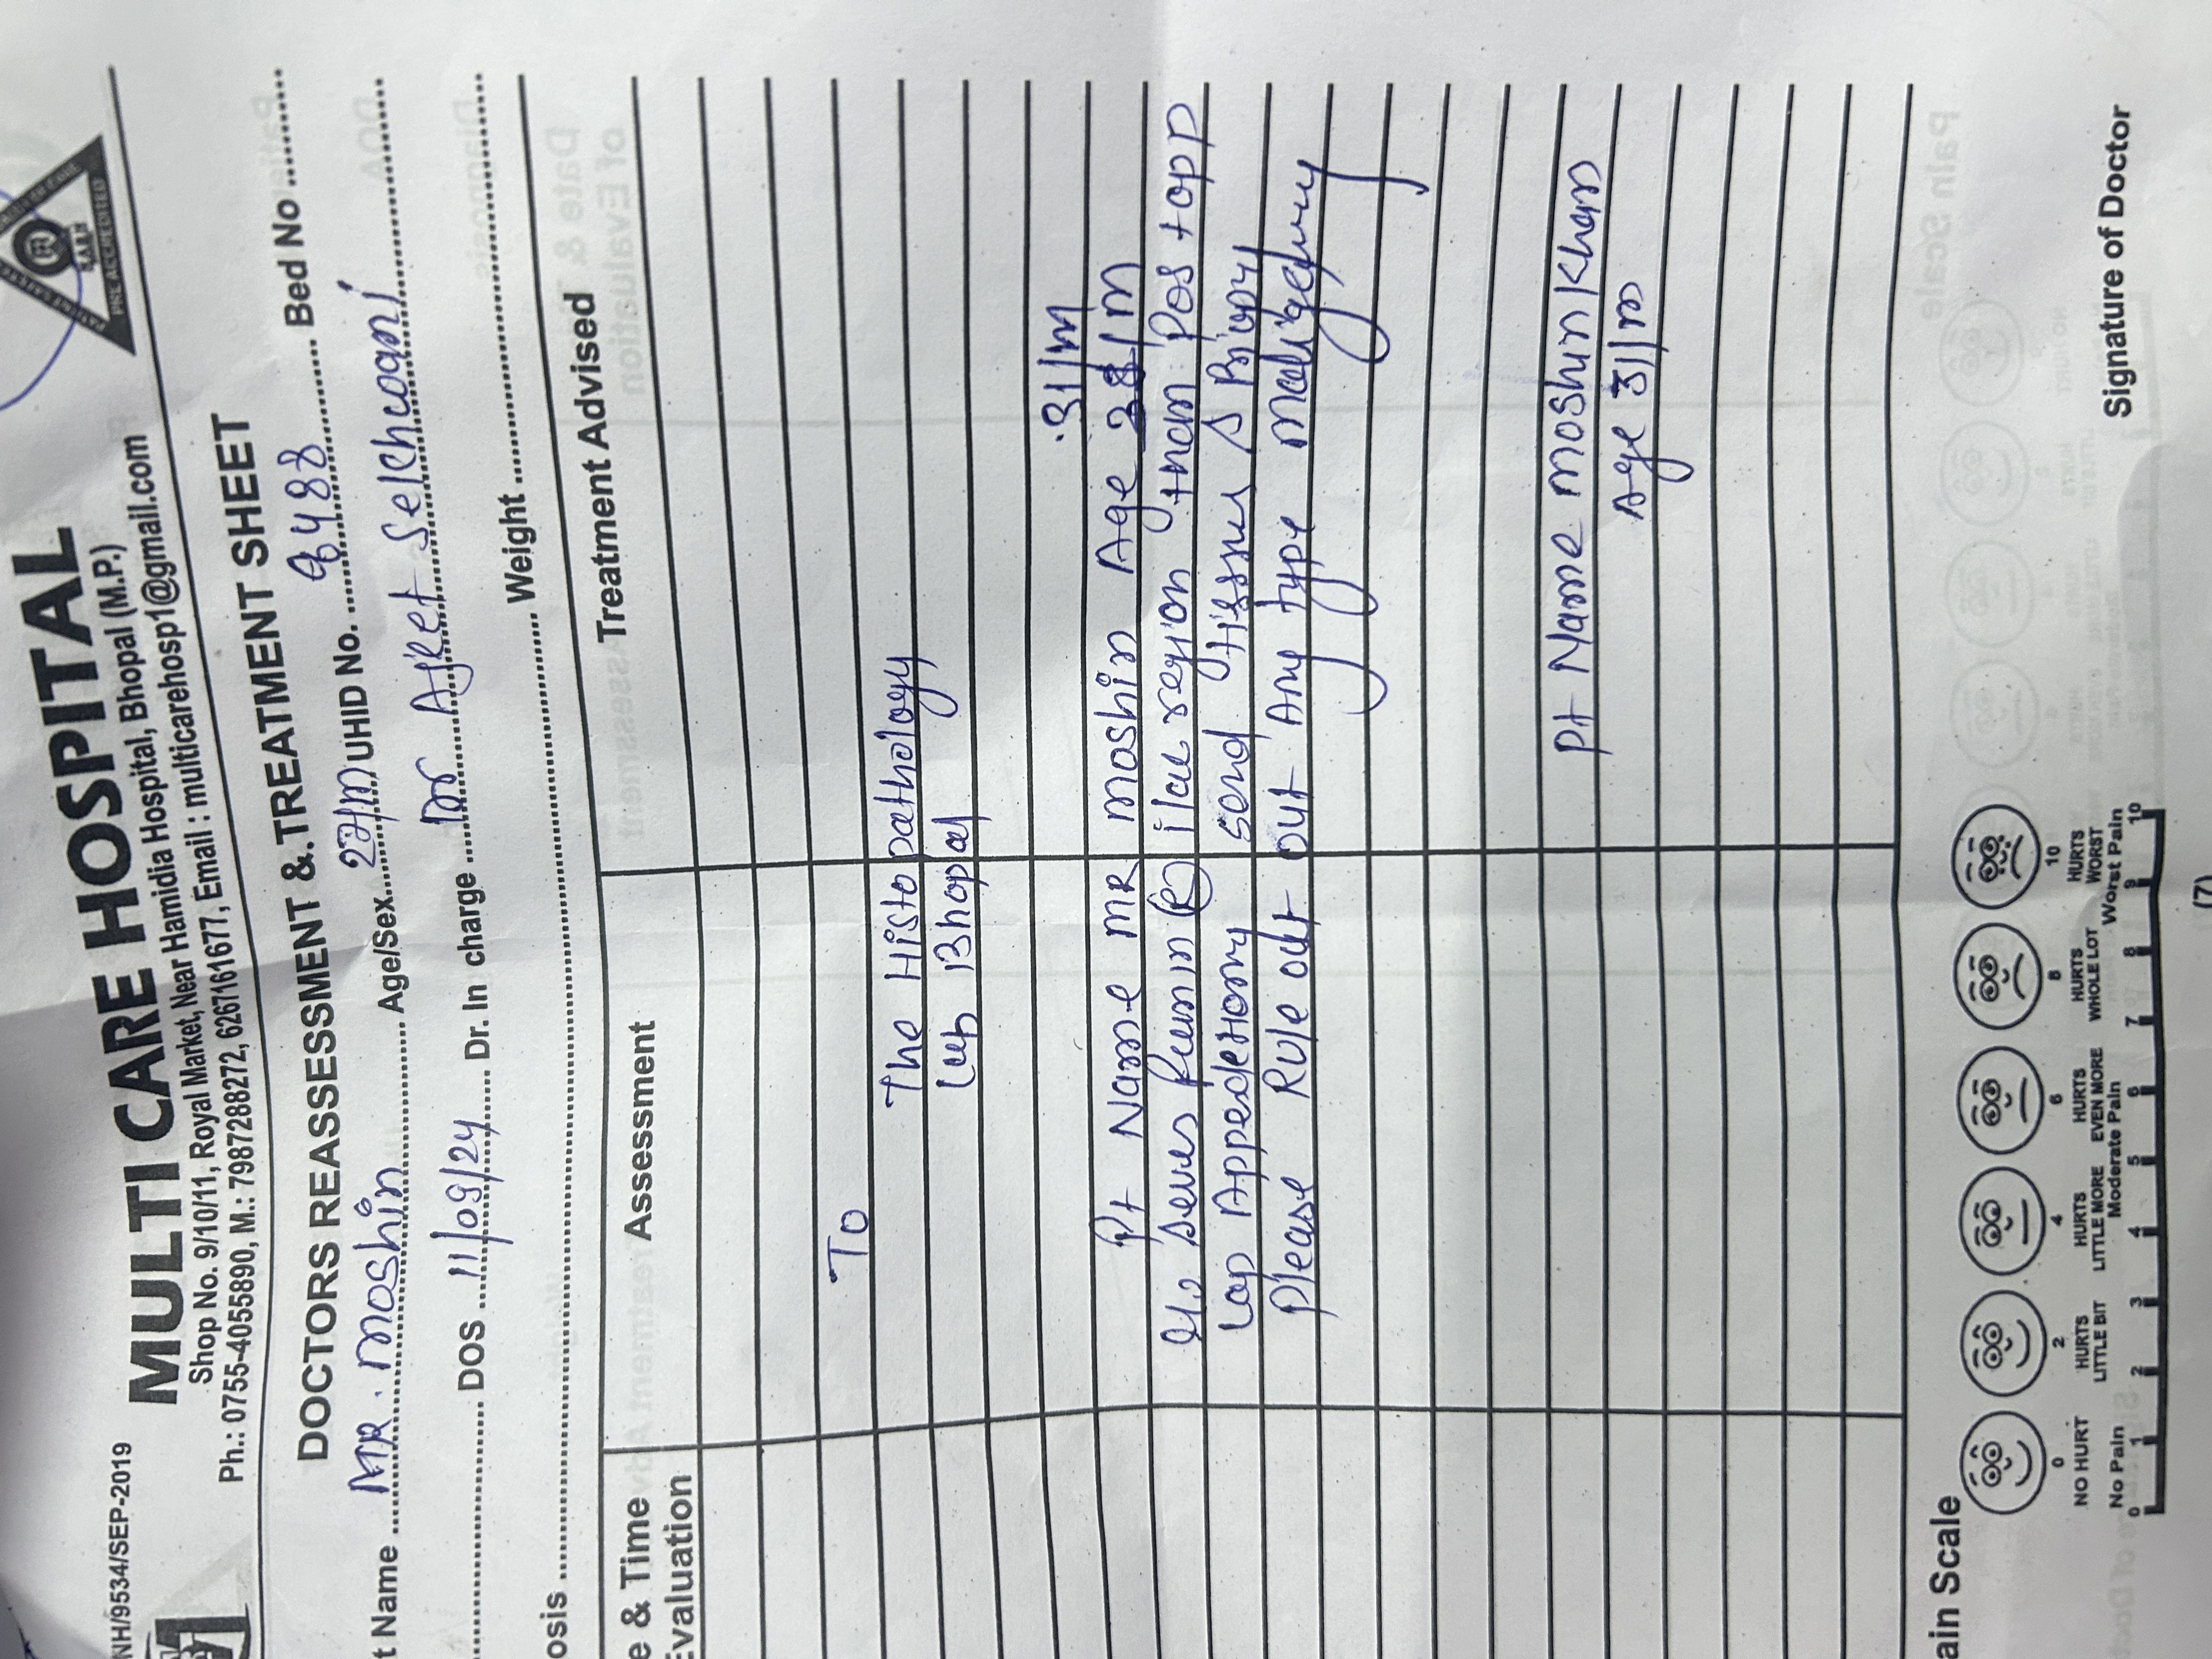 NH/9534/SEP-2019
MULTI CARE HOSPITAL
Shop No. 9/10/11, Royal Market, Near Hamidia Hospital, Bhopal (M.P.)
Ph.: 0755-4055890, M.: 7987288272, 6267161677, Email : multicarehosp1@gmail.com
PRE ACCREDITED
DOCTORS REASSESSMENT & TREATMENT SHEET
t Name MR. moshin Age/Sex /m UHID No. 9488 Bed No
DOS 11/09/24 Dr. In charge Dr
osis Weight
e & Time Evaluation
Assessment
Treatment Advised
To
The Histopathology
Bhopal
31/m
Pt Name MR moshin Age 28/m
in R region Pos topp
Lap send
Please Rule out out Any type
Pt Name moshin Khan
Age 31/m
ain Scale
0 2 4 6 8 10
NO HURT HURTS LITTLE BIT HURTS LITTLE MORE HURTS EVEN MORE HURTS WHOLE LOT HURTS WORST
No Pain Moderate Pain Worst Pain
0 1 2 3 4 5 6 7 8 9 10
Signature of Doctor
(7)